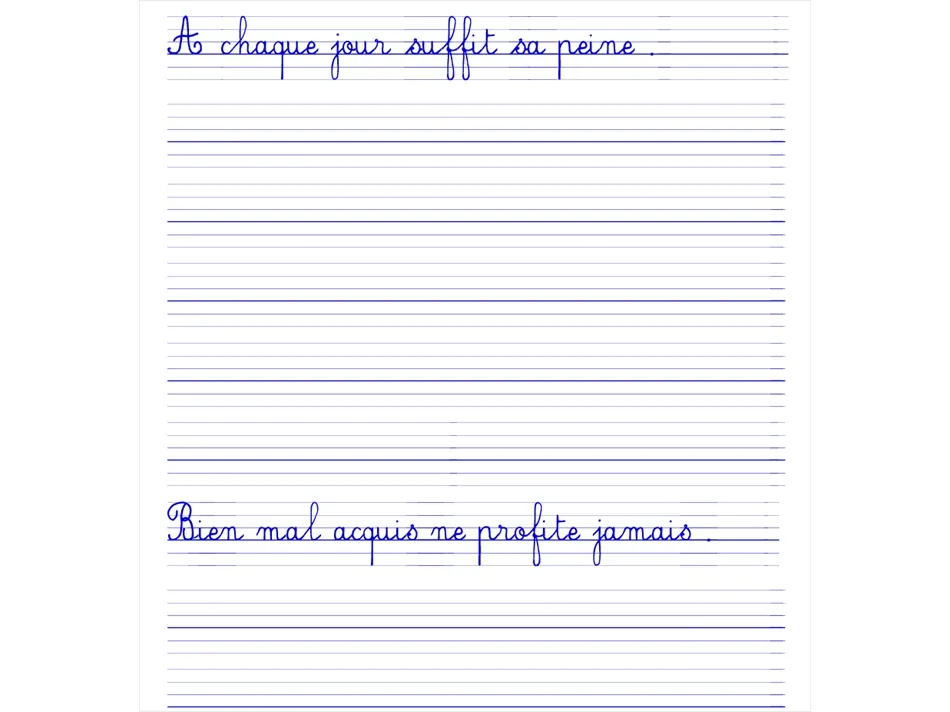 A chaque jour suffit sa peine .
Bien mal acquis ne profite jamais .